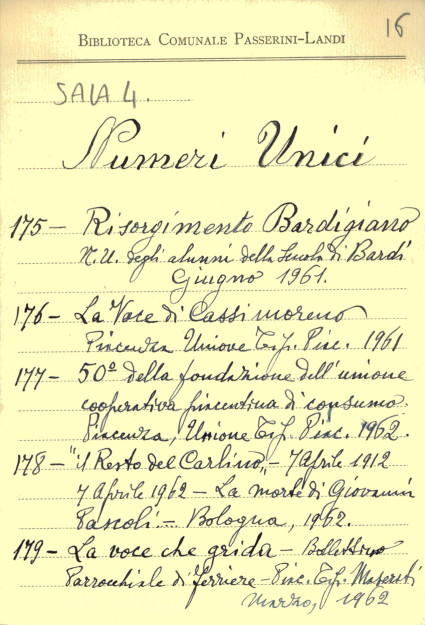 16
BIBLIOTECA COMUNALE PASSERINI-LANDI
SALA 4.
Numeri Unici
175 – Risorgimento Bardigiano
N.U. degli alunni della Scuola di Bardi
Giugno 1961.
176 – La Voce di Cassimoreno
Piacenza Unione Tip. Piac. 1961
177 – 50º della fondazione dell'unione
cooperativa piacentina di consumo.
Piacenza, Unione Tip. Piac. 1962.
178 – "il Resto del Carlino" – 7 Aprile 1912
7 Aprile 1962 – La morte di Giovanni
Pascoli. – Bologna, 1962.
179 – La voce che grida – Bollettino
Parrocchiale di Ferriere – Piac. Tip. Maserati
Marzo, 1962